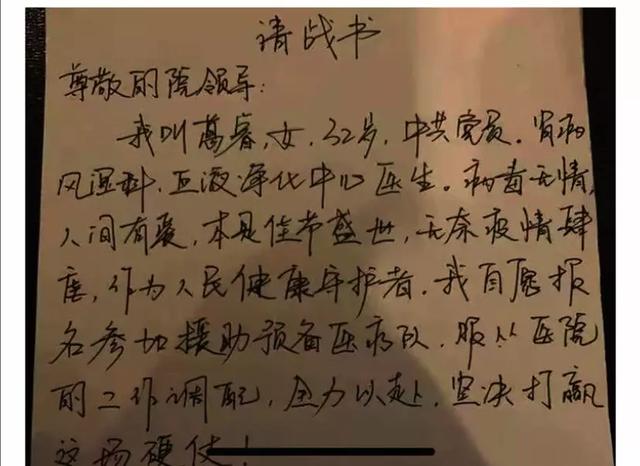 请战书
尊敬的院领导:
我叫,女,32岁,中共党员。肾病
风湿科,血液净化中心医生。病毒无情,
人间有爱,本是佳节盛世,无奈疫情肆
虐,作为人民健康守护者,我自愿报
名参加援助预备医疗队,服从医院
的工作调配,全力以赴,坚决打赢
这场硬仗!